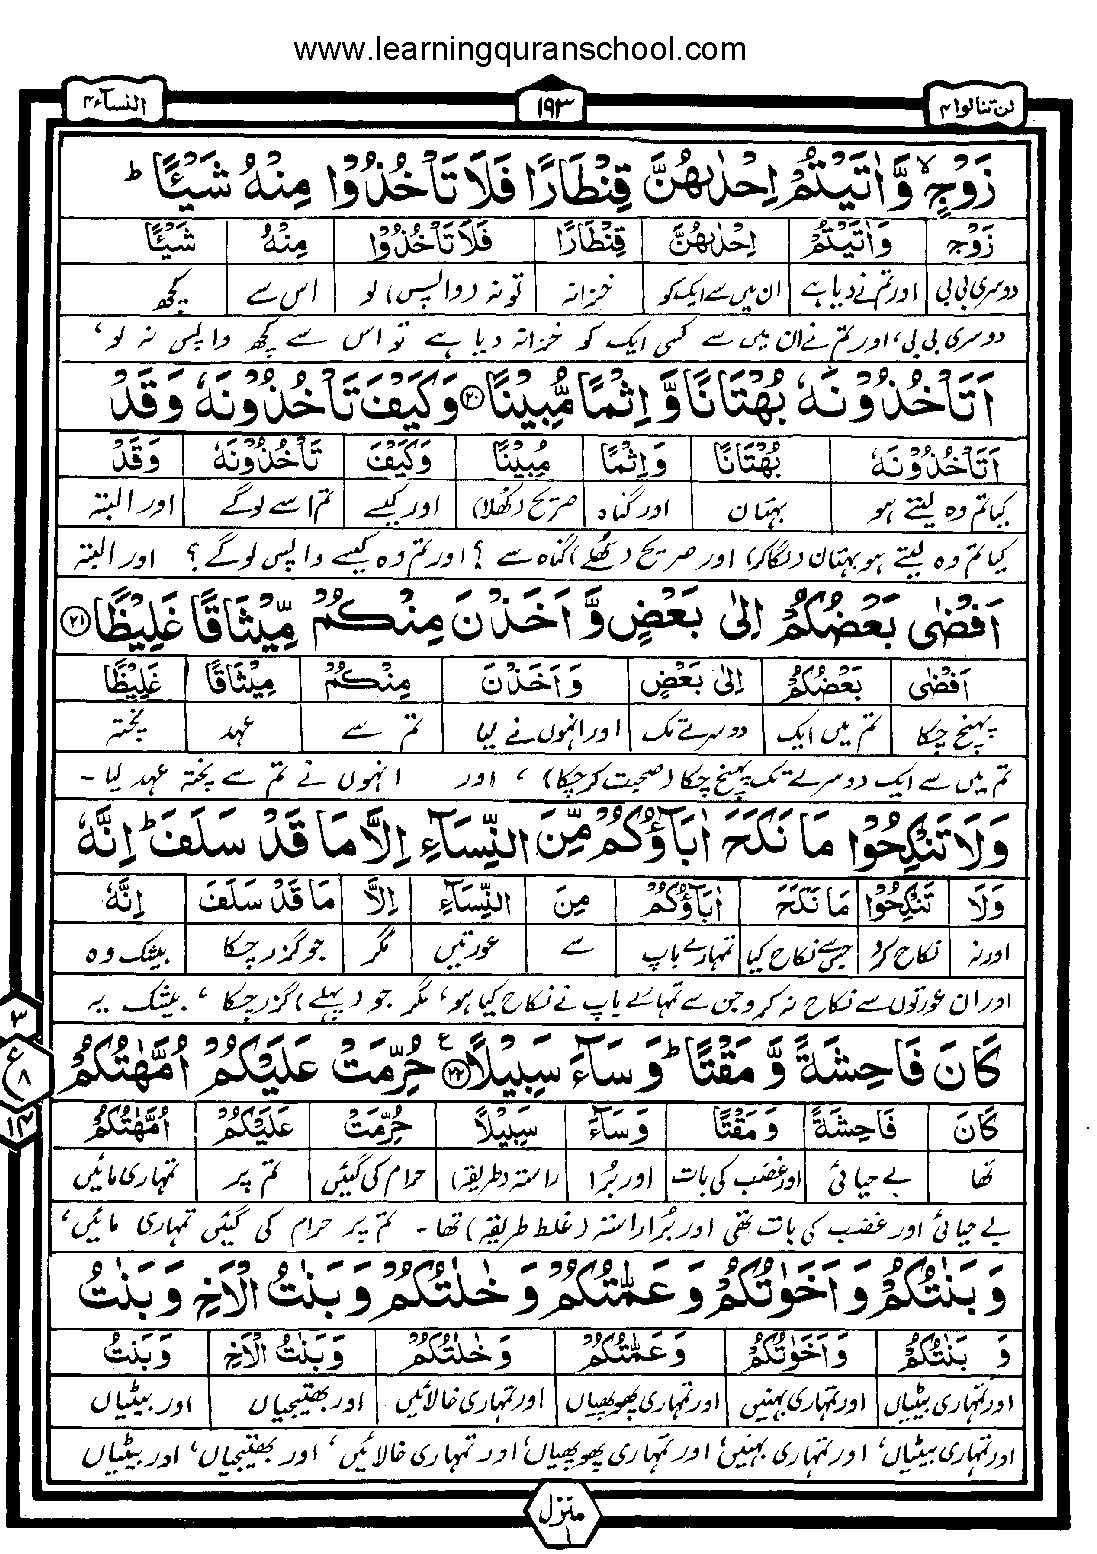 www.learningquranschool.com
لن تنالوا ۴ ۱۹۳ النسآء ۴
زَوْجٍ ۙ وَّاٰتَيْتُمْ اِحْدٰىهُنَّ قِنْطَارًا فَلَا تَاْخُذُوْا مِنْهُ شَيْـًٔا ؕ
زَوْجٍ وَاٰتَيْتُمْ اِحْدٰىهُنَّ قِنْطَارًا فَلَا تَاْخُذُوْا مِنْهُ شَيْـًٔا
دوسری بی بی اور تم نے دیا ہے ان میں سے ایک کو خزانہ تو نہ (واپس) لو اس سے کچھ
دوسری بی بی، اور تم نے ان میں سے کسی ایک کو خزانہ دیا ہے تو اس سے کچھ واپس نہ لو،
اَتَاْخُذُوْنَهٗ بُهْتَانًا وَّاِثْمًا مُّبِيْنًا ﴿۲۰﴾ وَكَيْفَ تَاْخُذُوْنَهٗ وَقَدْ
اَتَاْخُذُوْنَهٗ بُهْتَانًا وَاِثْمًا مُبِيْنًا وَكَيْفَ تَاْخُذُوْنَهٗ وَقَدْ
کیا تم وہ لیتے ہو بہتان اور گناہ صریح (کھلا) اور کیسے تم اسے لوگے اور البتہ
کیا تم وہ لیتے ہو بہتان (لگاکر) اور صریح (کھلے) گناہ سے ؟ اور تم وہ کیسے واپس لوگے ؟ اور البتہ
اَفْضٰى بَعْضُكُمْ اِلٰى بَعْضٍ وَّاَخَذْنَ مِنْكُمْ مِّيْثَاقًا غَلِيْظًا ﴿۲۱﴾
اَفْضٰى بَعْضُكُمْ اِلٰى بَعْضٍ وَاَخَذْنَ مِنْكُمْ مِيْثَاقًا غَلِيْظًا
پہنچ چکا تم میں ایک دوسرے تک اور انہوں نے لیا تم سے عہد پختہ
تم میں سے ایک دوسرے تک پہنچ چکا (صحبت کر چکا) ، اور انہوں نے تم سے پختہ عہد لیا ۔
وَلَا تَنْكِحُوْا مَا نَكَحَ اٰبَآؤُكُمْ مِّنَ النِّسَآءِ اِلَّا مَا قَدْ سَلَفَ ؕ اِنَّهٗ
وَلَا تَنْكِحُوْا مَا نَكَحَ اٰبَآؤُكُمْ مِنَ النِّسَآءِ اِلَّا مَا قَدْ سَلَفَ اِنَّهٗ
اور نہ نکاح کرو جس سے نکاح کیا تمہارے باپ سے عورتیں مگر جو گزر چکا بیشک وہ
اور ان عورتوں سے نکاح نہ کرو جن سے تمہارے باپ نے نکاح کیا ہو، مگر جو (پہلے) گزر چکا ، بیشک یہ
كَانَ فَاحِشَةً وَّمَقْتًا ؕ وَسَآءَ سَبِيْلًا ﴿۲۲﴾ ع حُرِّمَتْ عَلَيْكُمْ اُمَّهٰتُكُمْ
۳ ع ۸ ۱۴
كَانَ فَاحِشَةً وَمَقْتًا وَسَآءَ سَبِيْلًا حُرِّمَتْ عَلَيْكُمْ اُمَّهٰتُكُمْ
تھا بے حیائی اور غضب کی بات اور بُرا راستہ (طریقہ) حرام کی گئیں تم پر تمہاری مائیں
بے حیائی اور غضب کی بات تھی اور بُرا راستہ (غلط طریقہ) تھا ۔ تم پر حرام کی گئیں تمہاری مائیں،
وَبَنٰتُكُمْ وَاَخَوٰتُكُمْ وَعَمّٰتُكُمْ وَخٰلٰتُكُمْ وَبَنٰتُ الْاَخِ وَبَنٰتُ
وَ بَنٰتُكُمْ وَاَخَوٰتُكُمْ وَعَمّٰتُكُمْ وَخٰلٰتُكُمْ وَبَنٰتُ الْاَخِ وَبَنٰتُ
اور تمہاری بیٹیاں اور تمہاری بہنیں اور تمہاری پھوپھیاں اور تمہاری خالائیں اور بھتیجیاں اور بیٹیاں
اور تمہاری بیٹیاں، اور تمہاری بہنیں، اور تمہاری پھوپھیاں، اور تمہاری خالائیں، اور بھتیجیاں، اور بیٹیاں
منزل ۱